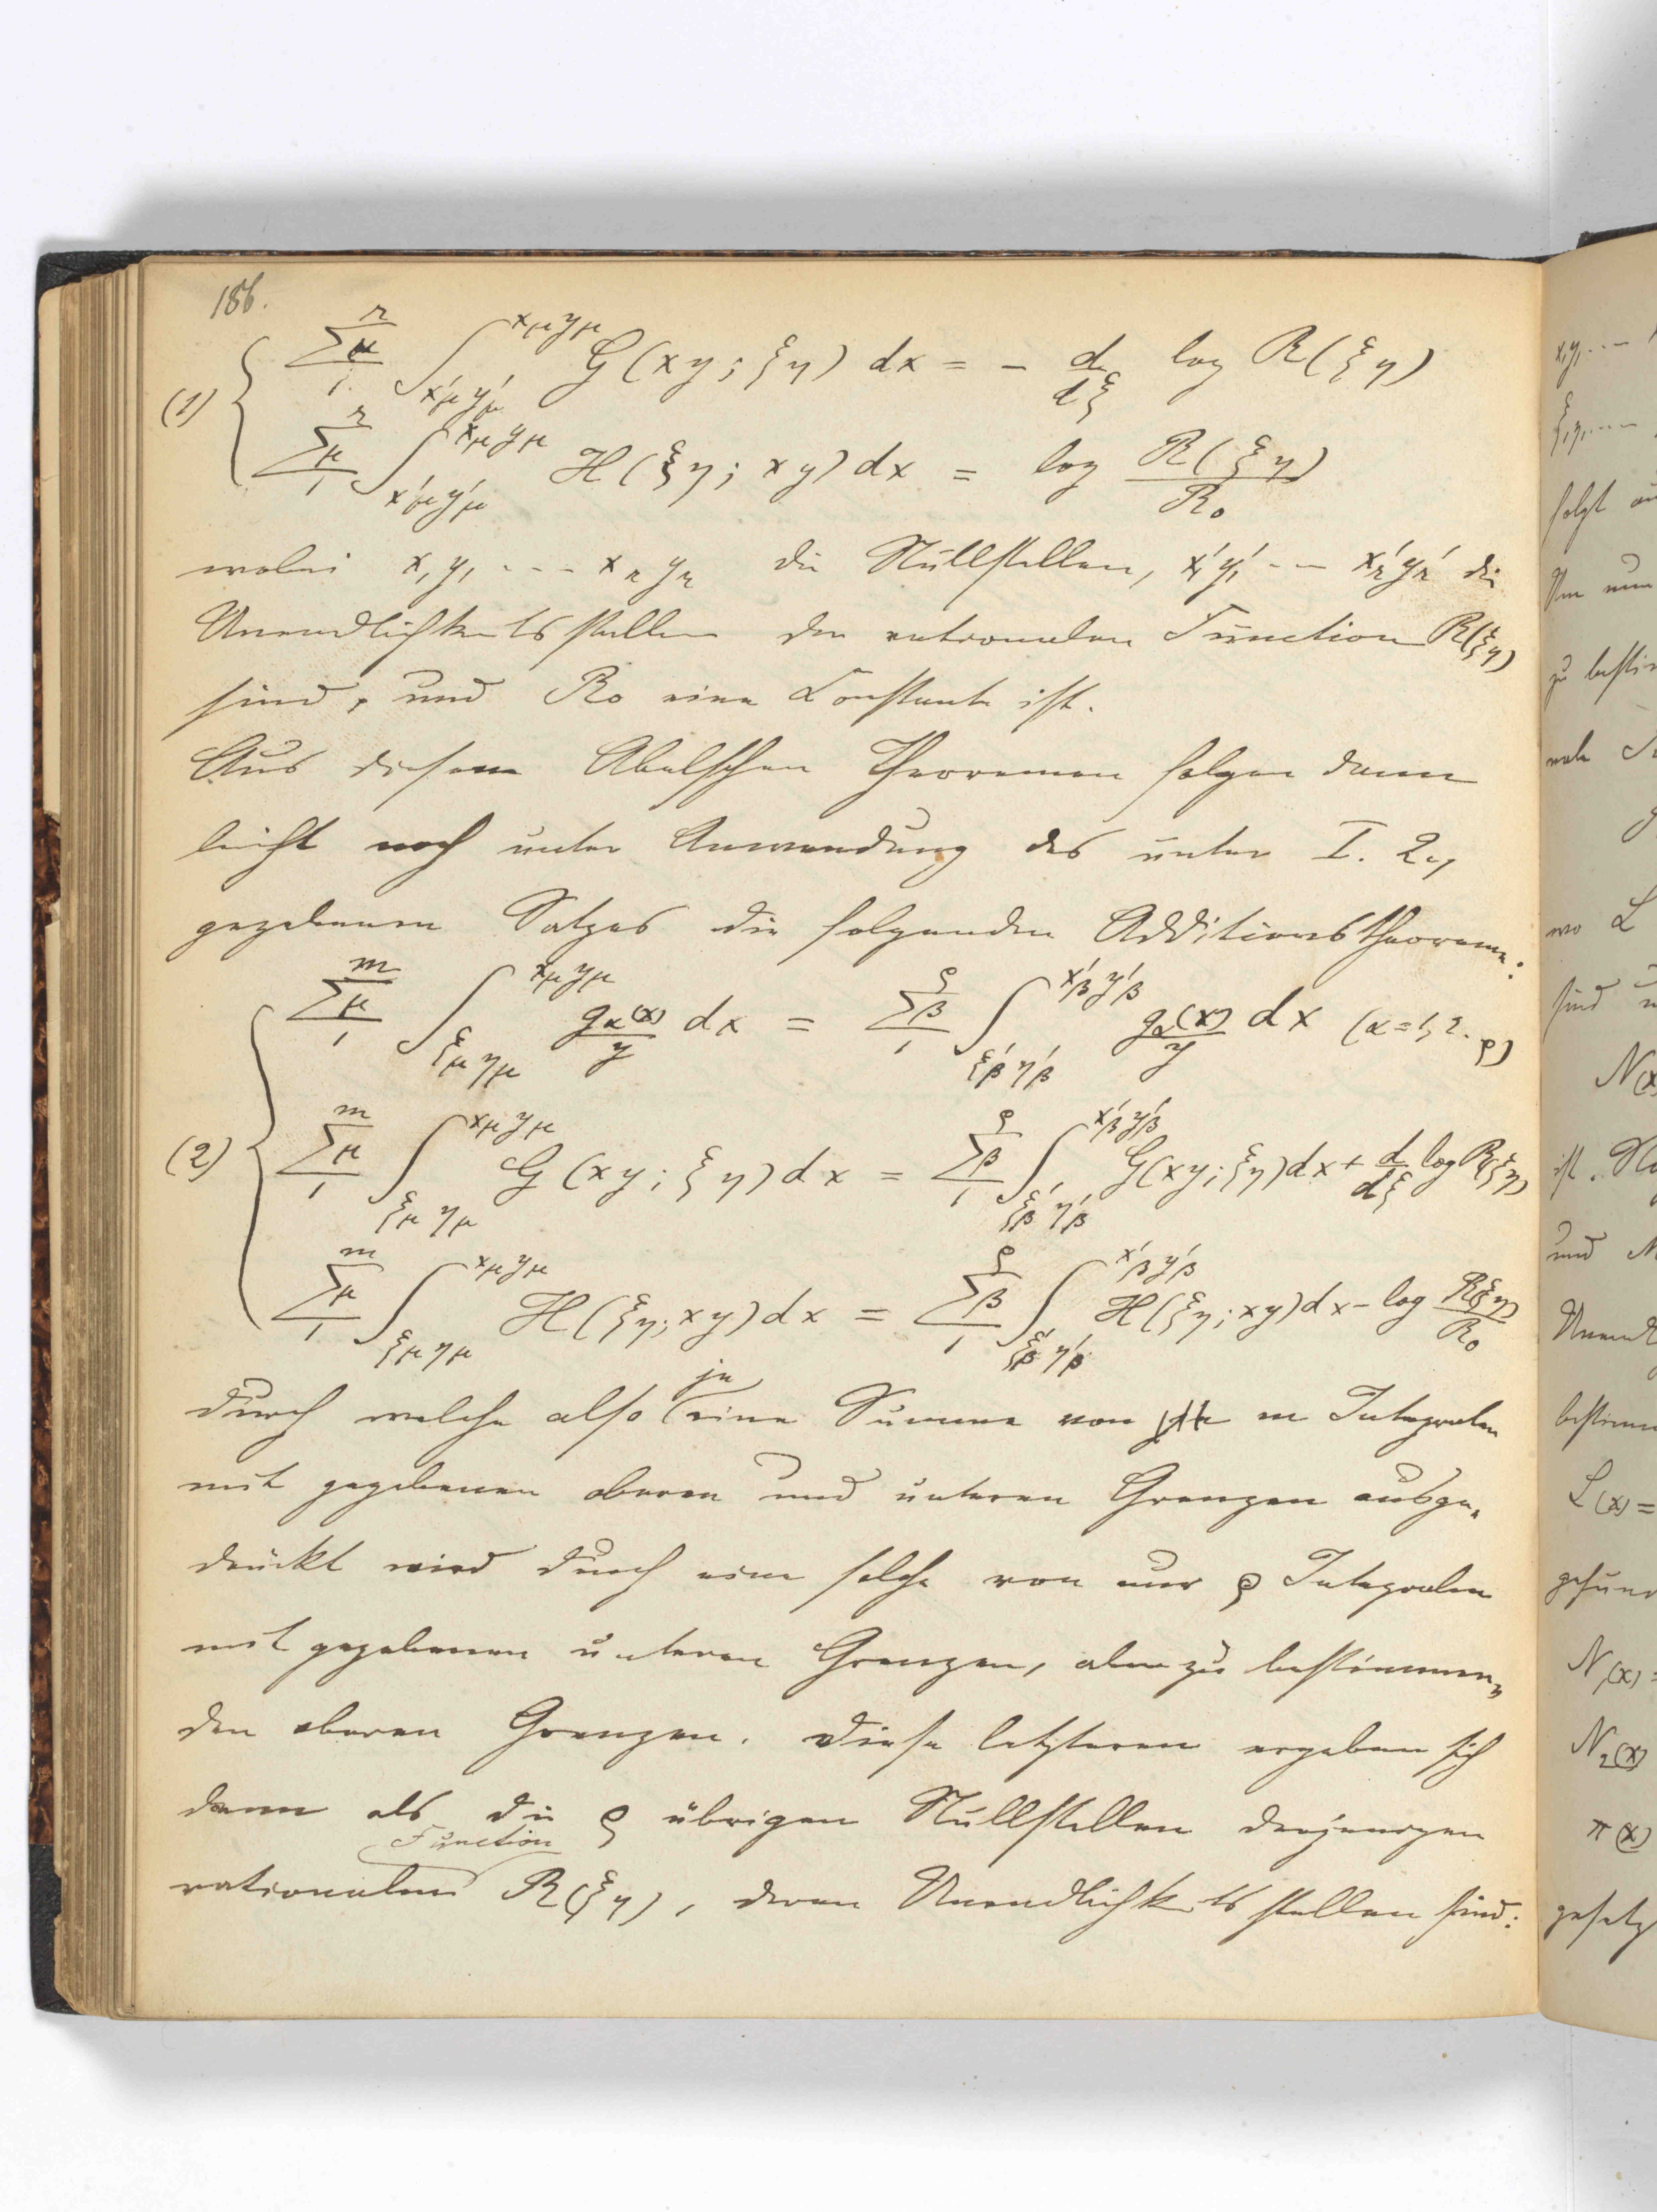 186.
(1) { \sum_{1}^{r}{}_{\mu} \int_{x'_\mu y'_\mu}^{x_\mu y_\mu} G(xy; ξη) dx = - \frac{d}{dξ} log R(ξη)
\sum_{1}^{r}{}_{\mu} \int_{x'_\mu y'_\mu}^{x_\mu y_\mu} H(ξη; xy) dx = log \frac{R(ξη)}{R_0}
wobei x_1 y_1 --- x_r y_r die Nullstellen, x'_1 y'_1 --- x'_r y'_r die
Unendlichkeitsstellen der rationalen Function R(ξη)
sind, und R_0 eine Constante ist.
Aus diesem Abelschen Theoremen folgen dann
leicht noch unter Anwendung des unter I. 2.,
gegebenen Satzes die folgenden Additionstheoreme:
\sum_{1}^{m}{}_{\mu} \int_{ξ_\mu η_\mu}^{x_\mu y_\mu} \frac{g_α(x)}{y} dx = \sum_{1}^{ρ}{}_{β} \int_{ξ'_β η'_β}^{x'_β y'_β} \frac{g_α(x)}{y} dx (α = 1, 2.. ρ)
(2) { \sum_{1}^{m}{}_{\mu} \int_{ξ_\mu η_\mu}^{x_\mu y_\mu} G(xy; ξη) dx = \sum_{1}^{ρ}{}_{β} \int_{ξ'_β η'_β}^{x'_β y'_β} G(xy; ξη) dx + \frac{d}{dξ} log R(ξη)
\sum_{1}^{m}{}_{\mu} \int_{ξ_\mu η_\mu}^{x_\mu y_\mu} H(ξη; xy) dx = \sum_{1}^{ρ}{}_{β} \int_{ξ'_β η'_β}^{x'_β y'_β} H(ξη; xy) dx - log \frac{R(ξη)}{R_0}
durch welche also je eine Summe von m Integralen
mit gegebenen oberen und unteren Grenzen ausge„
drückt wird durch eine solche von nur ρ Integralen
mit gegebenen unteren Grenzen, aber zu bestimmen„
den oberen Grenzen. Diese letzteren ergeben sich
dann als die ρ übrigen Nullstellen derjenigen
rationalen Function R(ξη), deren Unendlichkeitsstellen sind:
x_1 y_1 ---
ξ_1 η_1 ---
folgt
Um nun
zu
wo L
sind
N(x
ist.
und
L(x) =
N_1(x) =
N_2(x)
π(x)